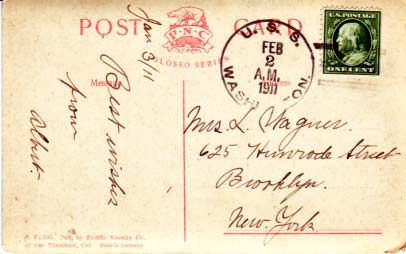 POST CARD
P.N.C.
COLOSSO SERIES
Message
Jan 31/11
Best wishes
from
Albert.
U.S.S.
WASHINGTON.
FEB
2
A.M.
1911
U.S. POSTAGE
ONE CENT
Mrs. L. Wagner.
625 Himrode Street
Brooklyn.
New York.
Pub. by Pacific Novelty Co.
of San Francisco, Cal. Made in Germany.